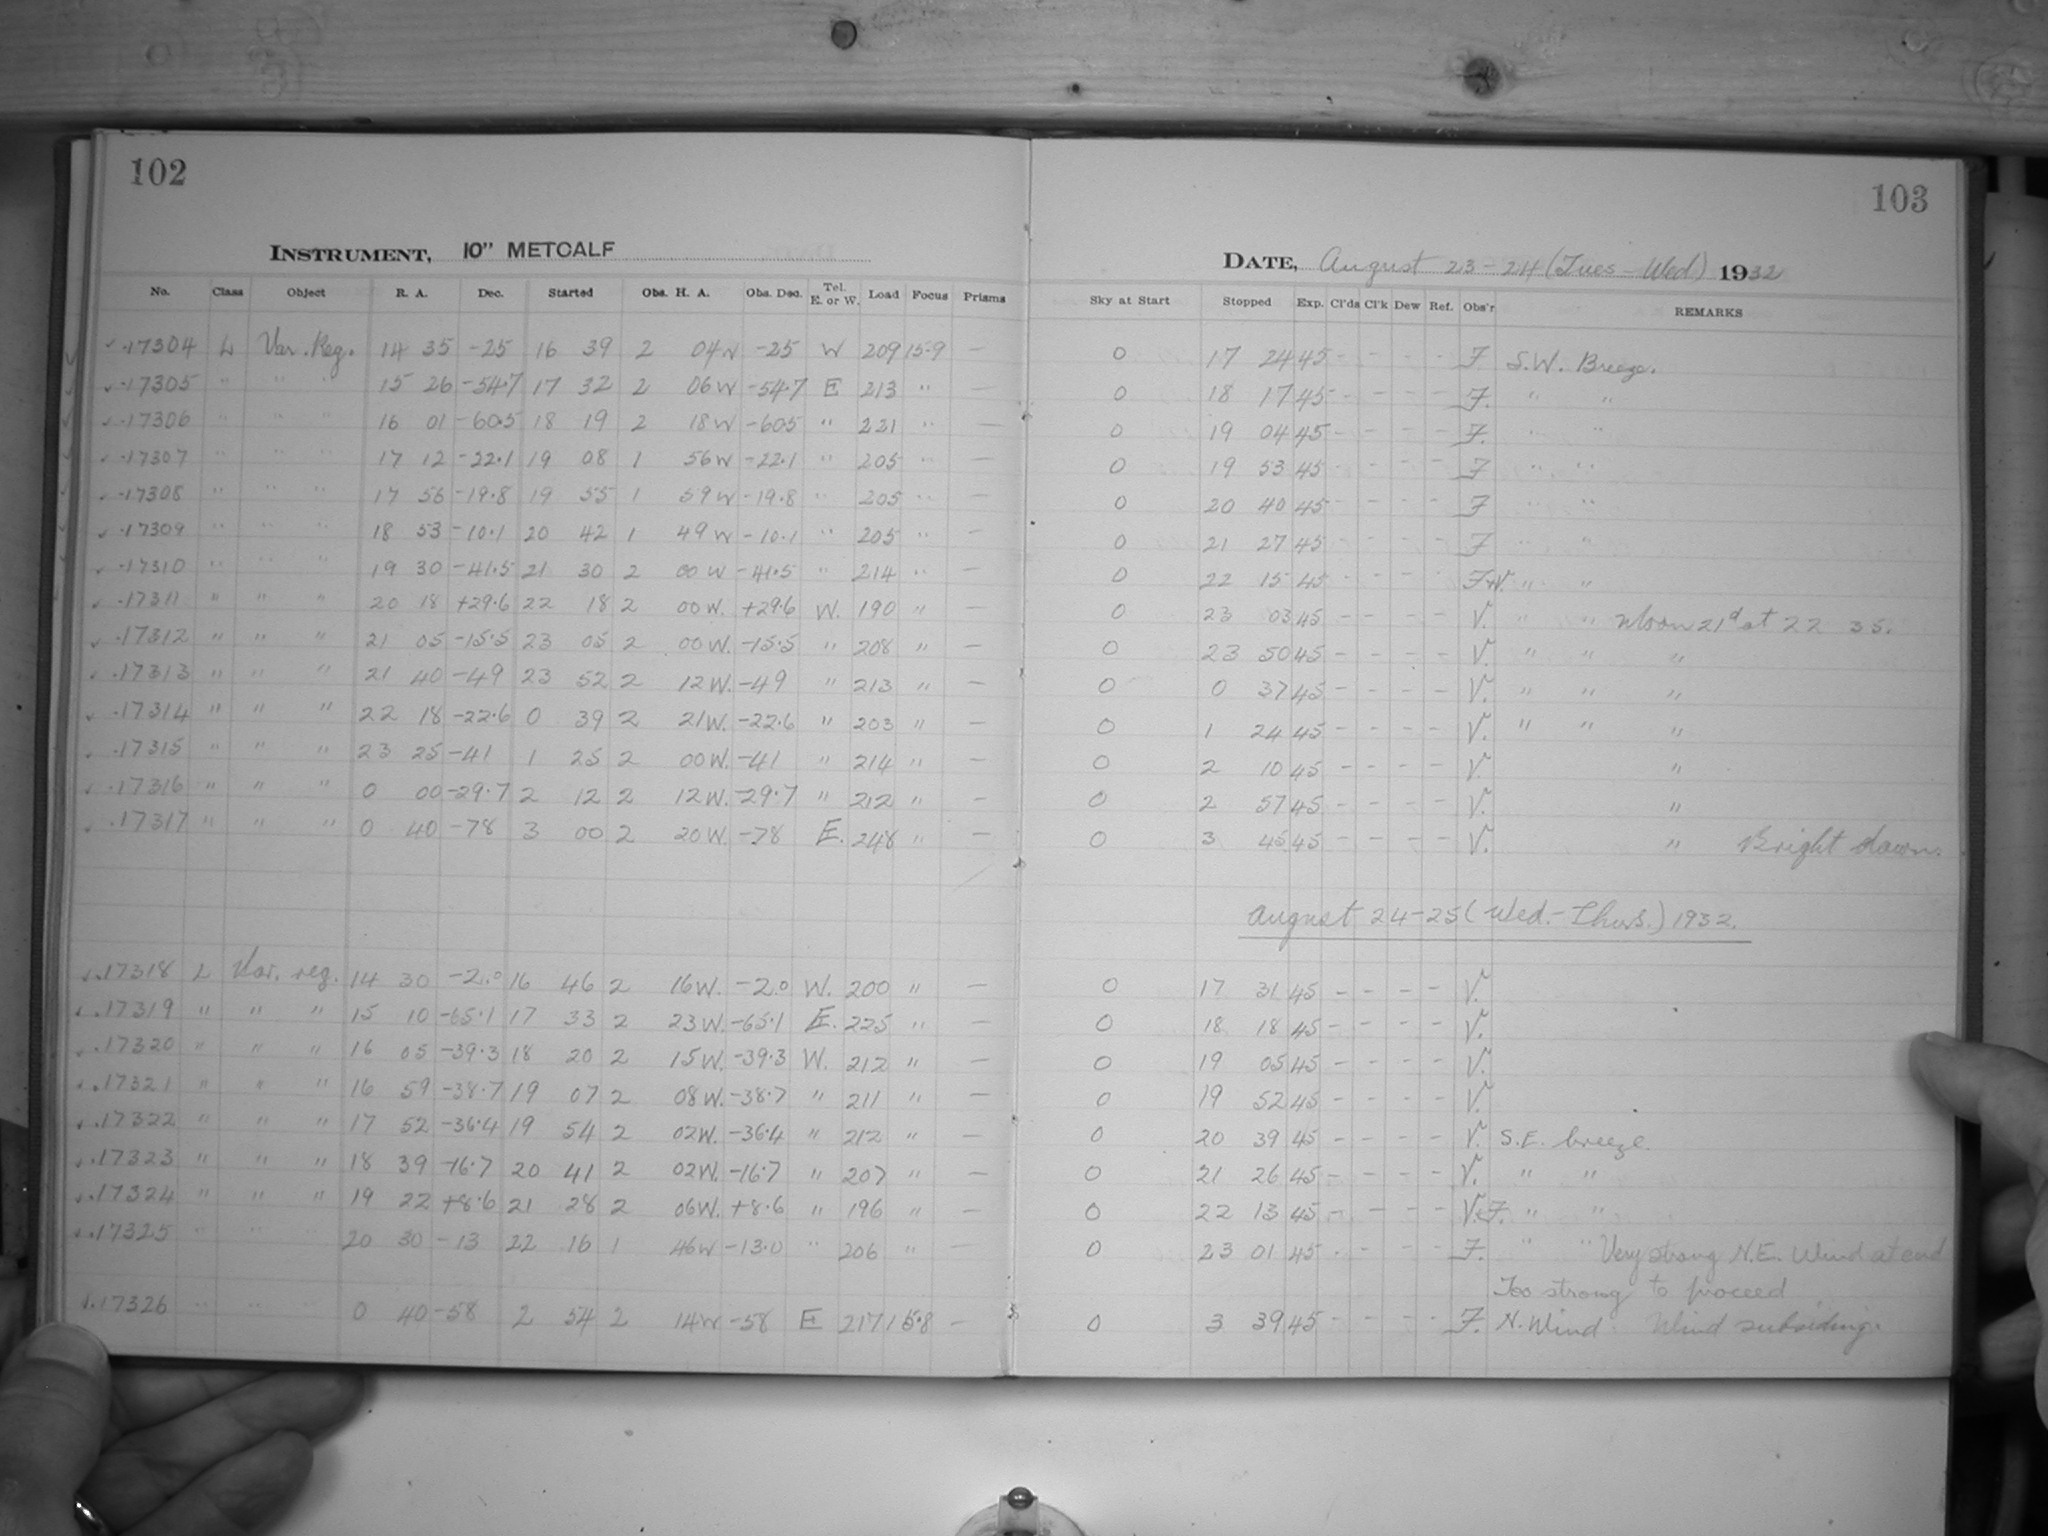 102
103
INSTRUMENT, 10" METCALF
DATE, August 23-24 (Tues-Wed) 1932
No. Class Object R. A. Dec. Started Obs. H. A. Obs. Dec. Tel. E. or W. Load Focus Prisms Sky at Start Stopped Exp. Cl'ds Cl'k Dew Ref. Obs'r REMARKS
17304 L Var. Reg. 14 35 -25 16 39 2 04W -25 W 209 15.9 — 0 17 24 45 - - - - F S.W. Breeze.
17305 " " " 15 26 -54.7 17 32 2 06W -54.7 E 213 " — 0 18 17 45 - - - - F. " "
17306 " " " 16 01 -60.5 18 19 2 18W -60.5 " 221 " — 0 19 04 45 - - - - F. " "
17307 " " " 17 12 -22.1 19 08 1 56W -22.1 " 205 " — 0 19 53 45 - - - - F " "
17308 " " " 17 56 -19.8 19 55 1 59W -19.8 " 205 " — 0 20 40 45 - - - - F " "
17309 " " " 18 53 -10.1 20 42 1 49W -10.1 " 205 " — 0 21 27 45 - - - - F " "
17310 " " " 19 30 -41.5 21 30 2 00W -41.5 " 214 " — 0 22 15 45 - - - - F+V. " "
17311 " " " 20 18 +29.6 22 18 2 00W. +29.6 W. 190 " — 0 23 03 45 - - - - V. " " Moon 21d at 22 35.
17312 " " " 21 05 -15.5 23 05 2 00W. -15.5 " 208 " — 0 23 50 45 - - - - V. " " "
17313 " " " 21 40 -49 23 52 2 12W. -49 " 213 " — 0 0 37 45 - - - - V. " " "
17314 " " " 22 18 -22.6 0 39 2 21W. -22.6 " 203 " — 0 1 24 45 - - - - V. " " "
17315 " " " 23 25 -41 1 25 2 00W. -41 " 214 " — 0 2 10 45 - - - - V. "
17316 " " " 0 00 -29.7 2 12 2 12W. -29.7 " 212 " — 0 2 57 45 - - - - V. "
17317 " " " 0 40 -78 3 00 2 20W. -78 E. 248 " — 0 3 45 45 - - - - V. " Bright dawn.
August 24-25 (Wed.-Thurs.) 1932.
17318 L Var. reg. 14 30 -2.0 16 46 2 16W. -2.0 W. 200 " — 0 17 31 45 - - - - V.
17319 " " " 15 10 -65.1 17 33 2 23W. -65.1 E. 225 " — 0 18 18 45 - - - - V.
17320 " " " 16 05 -39.3 18 20 2 15W. -39.3 W. 212 " — 0 19 05 45 - - - - V.
17321 " " " 16 59 -38.7 19 07 2 08W. -38.7 " 211 " — 0 19 52 45 - - - - V.
17322 " " " 17 52 -36.4 19 54 2 02W. -36.4 " 212 " — 0 20 39 45 - - - - V. S.E. breeze.
17323 " " " 18 39 -16.7 20 41 2 02W. -16.7 " 207 " — 0 21 26 45 - - - - V. " "
17324 " " " 19 22 +8.6 21 28 2 06W. +8.6 " 196 " — 0 22 13 45 - - - - V.&F. " "
17325 " " 20 30 -13 22 16 1 46W -13.0 " 206 " — 0 23 01 45 - - - - F. " " Very strong N.E. Wind at end
Too strong to proceed
17326 " " " 0 40 -58 2 54 2 14W -58 E 217 15.8 — 0 3 39 45 - - - - F. N. Wind Wind subsiding.